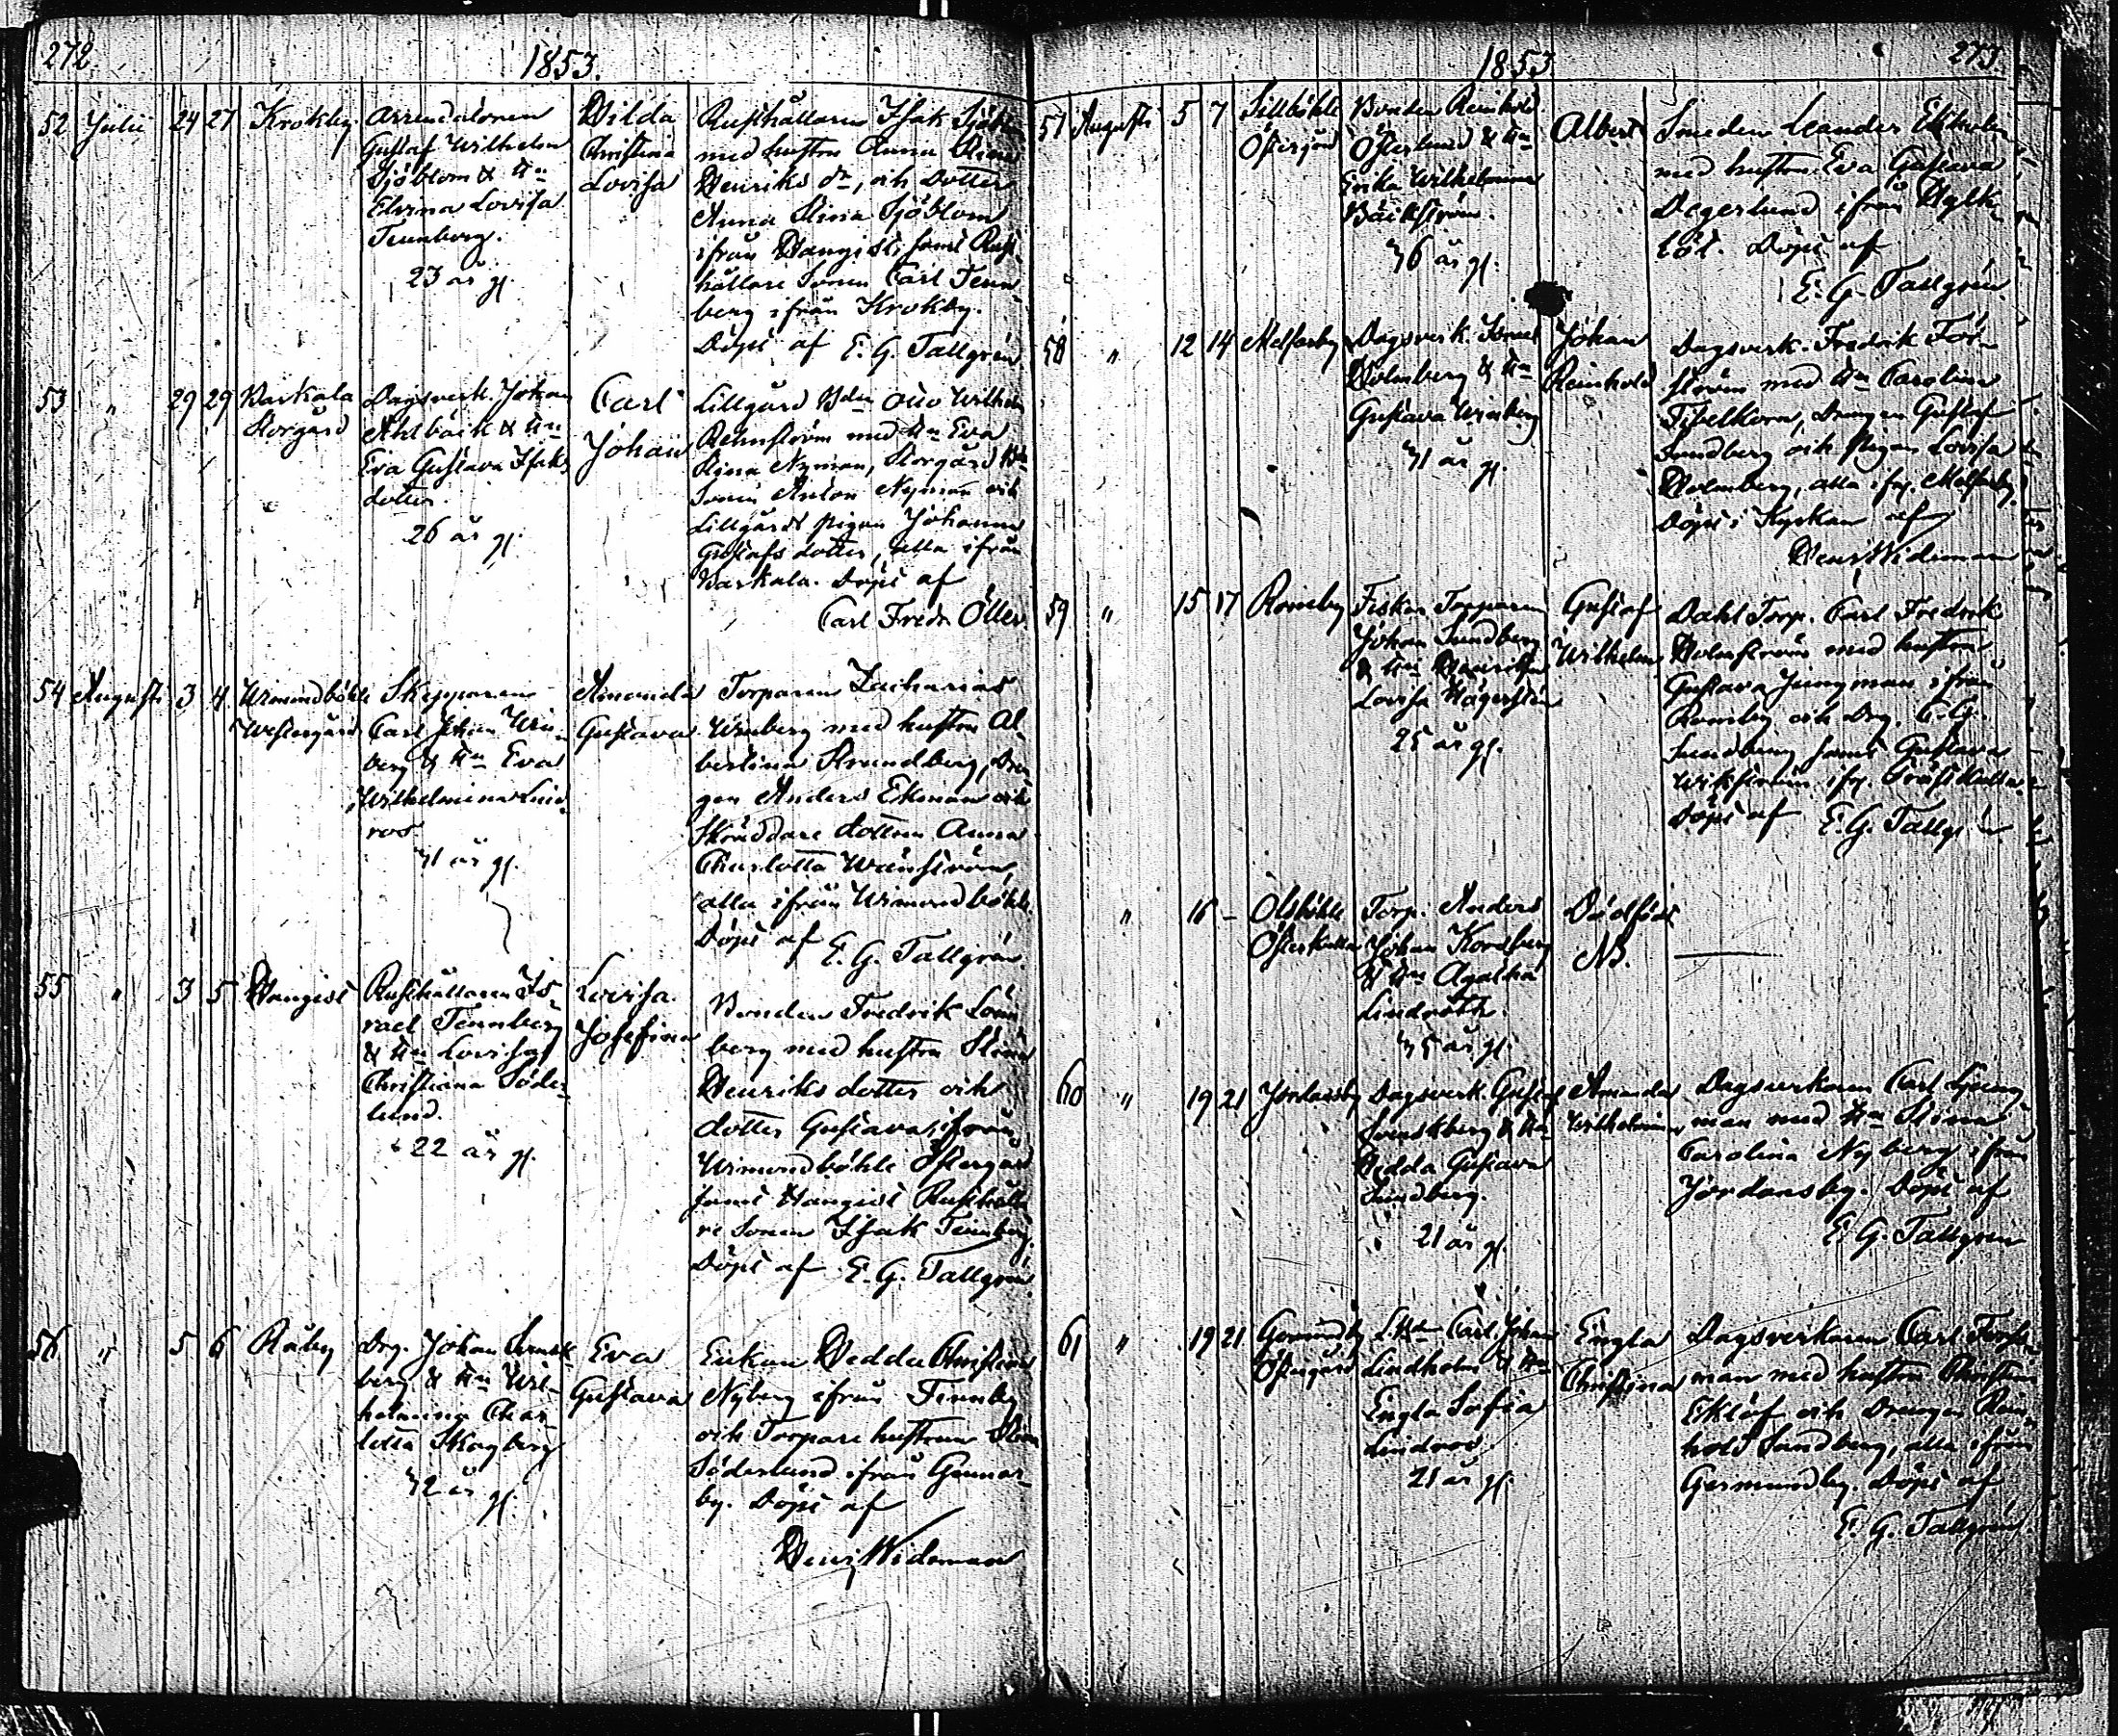 272
1853.
52 Julii 24 27 Krokby
Arrendatoren
Gustaf Wilhelm
Sjöblom & Hu
Elvina Lovisa
Tennberg.
23 år gl.
Hilda
Christina
Lovisa
Rusthållaren Isak Sjöblom
med hustru Anna Stina
Henriks dr, och dotter
Anna Stina Sjöblom
ifrån Hangist, samt Rust-
hållare Sonen Carl Tenn-
berg ifrån Krokby.
Döpt af E. G. Tallgrén
53 " 29 29 Barkala
Storgård
Dagsverk. Johan
Ahlbäck & Hu
Eva Gustava Isaks
dotter.
26 år gl.
Carl
Johan
Lillgård Bdn Otto Wilhelm
Rehnström med Hu Eva
Stina Nyman, Storgård
Sonen Anton Nyman och
Lillgårds pigan Johanna
Gustafs dotter, alla ifrån
Barkala. Döpt af
Carl Fredr Öller.
54 Augusti 3 4 Wimundböhle
Westergård
Skepparen
Carl Johan Win-
berg & Hu Eva
Wilhelmina Lind-
ros
41 år gl.
Amanda
Gustava
Torparen Zacharias
Winberg med hustru Al-
bertina Strandberg, Dren-
gen Anders Ekman och
Skräddare dottren Anna
Charlotta Wänström,
alla ifrån Wimundböhle.
Döpt af E. G. Tallgrén.
55 " 3 5 Hangist
Rusthållaren Is-
rael Tennberg
& Hu Lovisa
Christiana Söder-
lund.
22 år gl.
Lovisa
Josefina
Bonden Fredrik Lönn-
berg med hustru Stina
Henriks dotter och
dotter Gustava, ifrån
Wimundböhle Östergård
samt Hangist Rusthålla-
re Sonen Isak Tennberg.
Döpt af E. G. Tallgrén
56 " 5 6 Råby
Drg. Johan Svensk-
berg & Hu Wil-
helmina Char-
lotta Skogberg
42 år gl.
Eva
Gustava
Enkan Hedda Christina
Nyberg ifrån Finnby
och Torpare hustrun Stina
Söderlund ifrån Gunnar-
by. Döpt af
Henr Wideman
1853
273
57 Augusti 5 7 Sillböhle
Östergård
Bonden Reinhold
Österlund & Hu
Erika Wilhelmina
Bäckström.
36 år gl.
Albert
Smeden Leander Ekholm
med hustru Eva Gustava
Degerlund ifrån
Döpt af
E. G. Tallgrén.
58 " 12 14 Melfarby
Dagsverk. Israel
Holmberg & Hu
Gustava Winberg
41 år gl.
Johan
Reinhold
Dagsverk. Fredrik For-
ström med Hu Carolina
Drengen Gustaf
Sundberg och Pigan Lovisa
Holmberg, alla ifr. Melfarby.
Döpt i Kyrkan af
Henr Wideman
59 " 15 17 Romsby
Fiskar Torparen
Johan Sundberg
& Hu Henrika
Lovisa Hägersten
25 år gl.
Gustaf
Wilhelm
Dahl Torp. Carl Fredrik
Holmström med hustru
Gustava Jungman ifrån
Romsby och Drg. C. G.
Sundberg samt Gustava
Wikström ifr. Prästkulla.
Döpt af E. G. Tallgrén
" 16 - Olsböhle
Österkulla
Torp. Anders
Johan Nordberg
& Hu Agatha
Lindroth.
35 år gl.
Dödfödt
NB.
60 " 19 21 Jordansby
Dagsverk. Gustaf
Svenskberg & Hu
Hedda Gustava
Sundberg.
21 år gl.
Amanda
Wilhelmina
Dagsverkaren Carl Ljung-
man med Hu Stina
Carolina Nyberg ifrån
Jordansby. Döpt af
E. G. Tallgrén
61 " 19 21 Germundby
Östergård
Carl Johan
Lindholm & Hu
Engla Sofia
Lindros
21 år gl.
Engla
Christina
Dagsverkaren Carl Forss-
man med hustru Christina
Eklöf och Drengen Rein-
hold Sandberg, alla ifrån
Germundby. Döpt af
E. G. Tallgrén